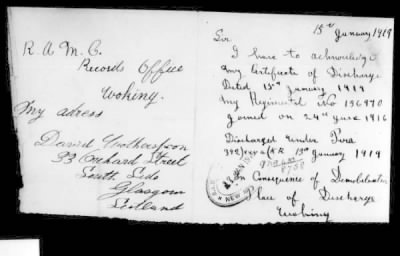 R. A. M. C.
Records Office
Woking.
My adress
David Wotherspoon
93 Orchard Street
South Side
Glasgow
Scotland
13th January 1919
Sir
I have to acknowledge
my Certificate of Discharge
Dated 13th January 1919
my Regimental No 136970
Joined on 24th June 1916
Discharged Under Para
392 (K R 13th January 1919
In Consequence of Demobilization
Place of Discharge
Woking